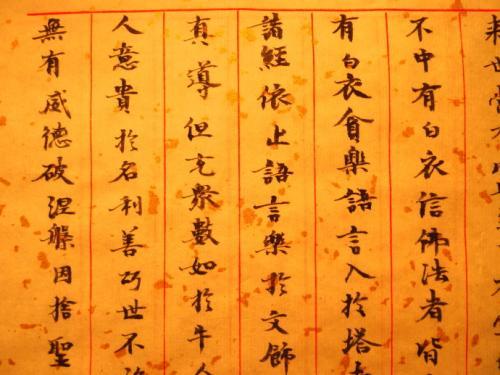 不中有白衣信佛法者皆
有白衣貪樂語言入於塔
諸經依止語言樂於文飾
真導但充衆數如於牛
人意貴於名利善巧世不
無有威德破涅槃因捨聖